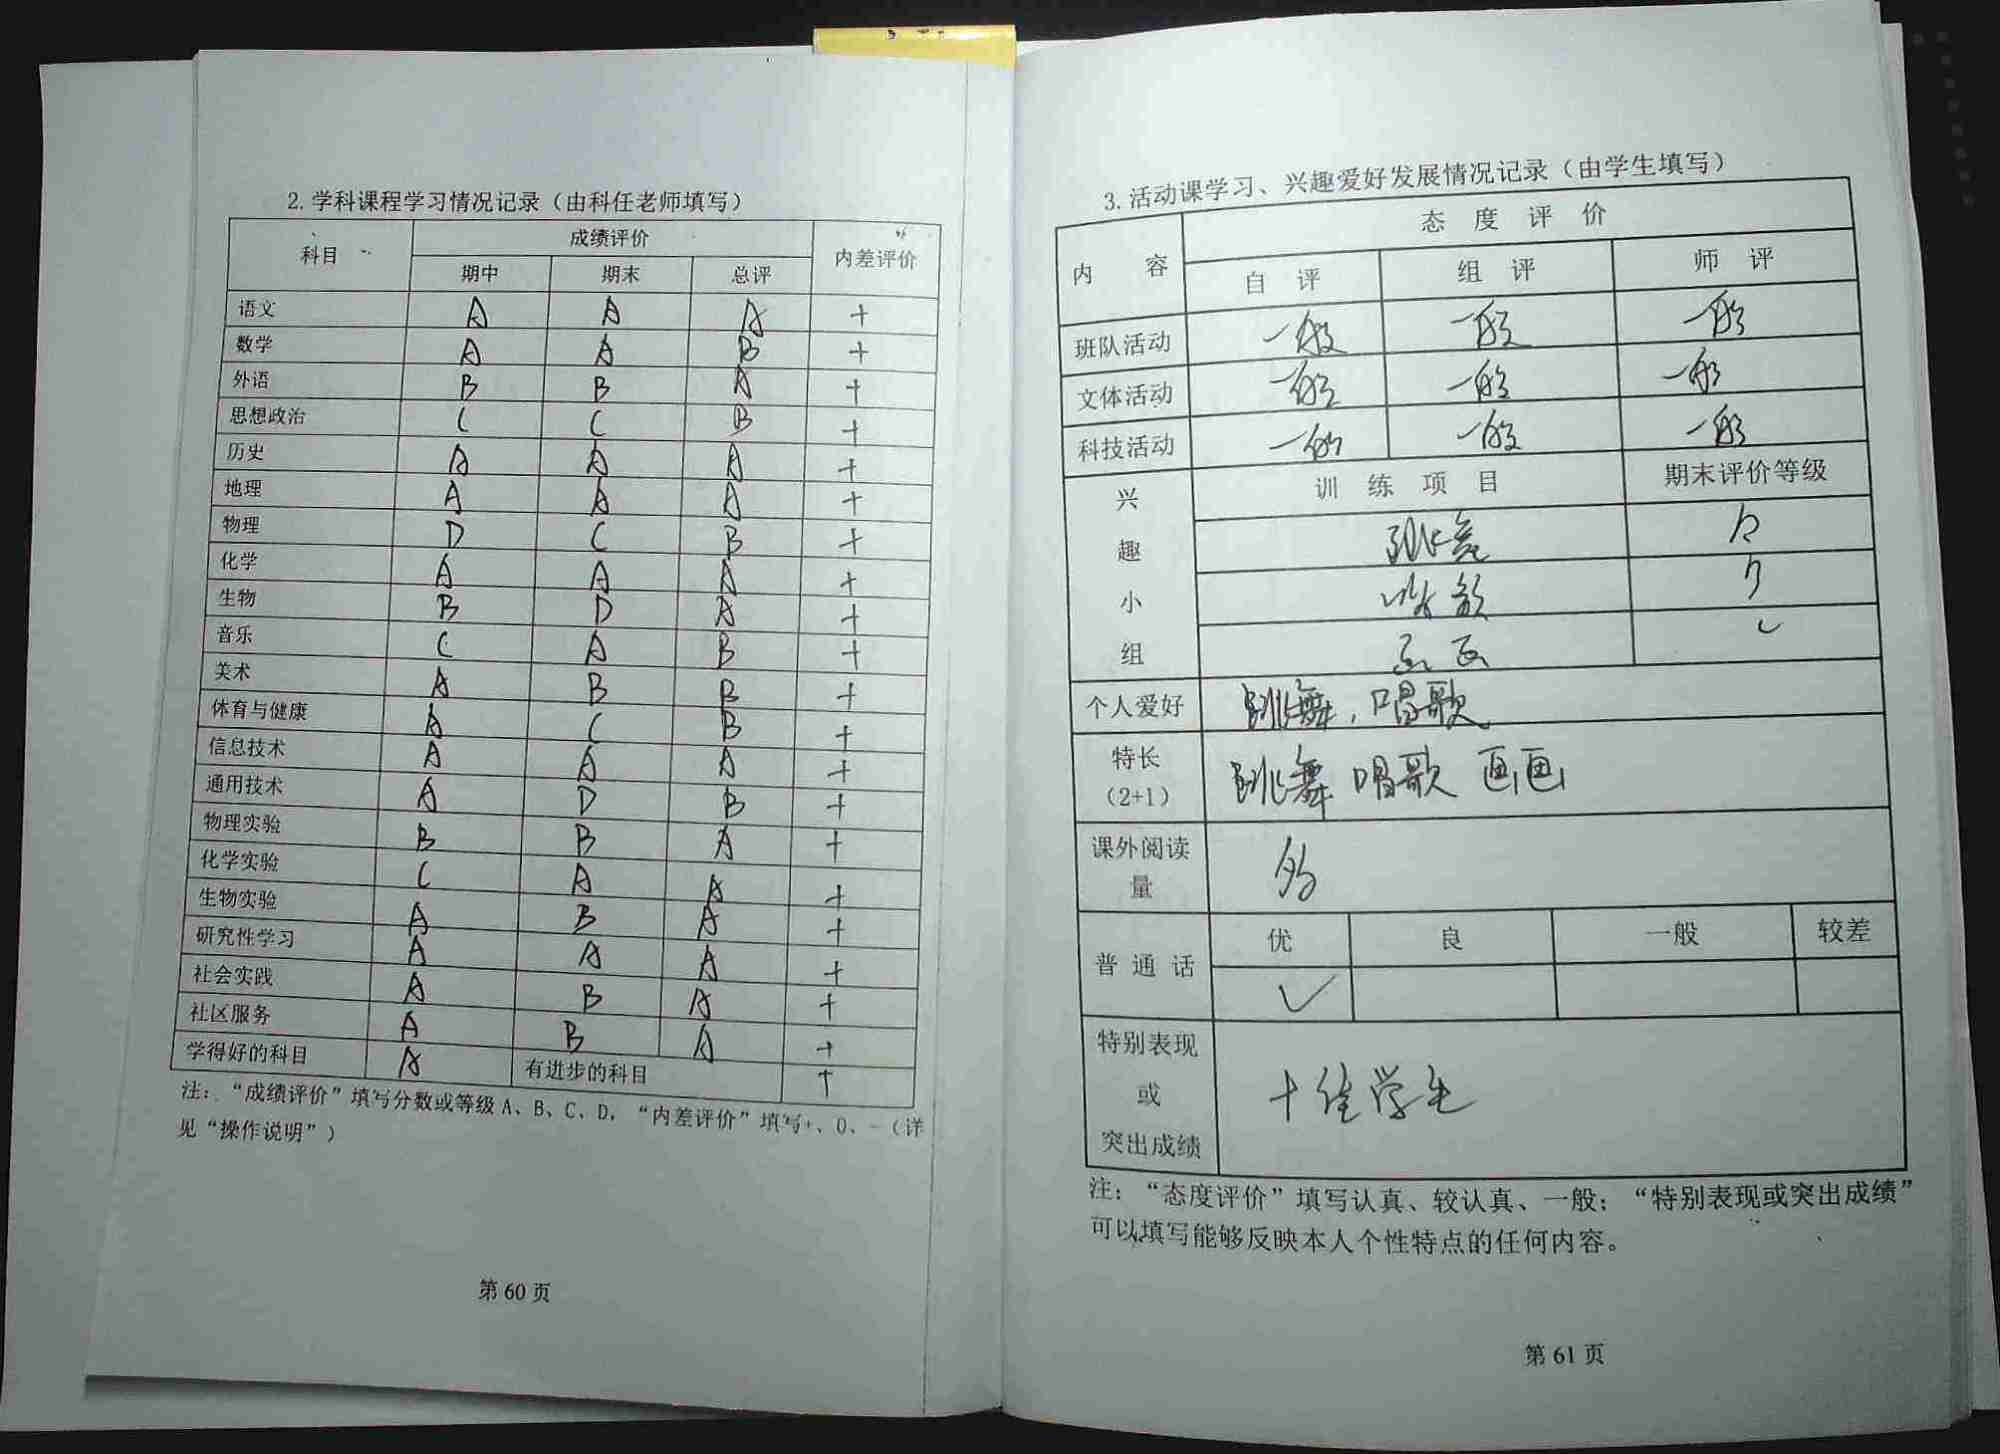 2.学科课程学习情况记录（由科任老师填写）
科目 成绩评价 内差评价
期中 期末 总评
语文 A A A +
数学 A A B +
外语 B B A +
思想政治 C C B +
历史 A A A +
地理 A A A +
物理 D C B +
化学 A A A +
生物 B D A +
音乐 C A B +
美术 A B B +
体育与健康 A C B +
信息技术 A A A +
通用技术 A D B +
物理实验 B B A +
化学实验 C A A +
生物实验 A B A +
研究性学习 A A A +
社会实践 A B A +
社区服务 A B A +
学得好的科目 A 有进步的科目 +
注：“成绩评价”填写分数或等级 A、B、C、D，“内差评价”填写+、0、-（详
见“操作说明”）
第 60 页
3.活动课学习、兴趣爱好发展情况记录（由学生填写）
内 容 态 度 评 价
自 评 组 评 师 评
班队活动 一般 一般 一般
文体活动 一般 一般 一般
科技活动 一般 一般 一般
兴趣小组 训 练 项 目 期末评价等级
跳舞
唱歌
画画
个人爱好 跳舞，唱歌
特长
（2+1） 跳舞 唱歌 画画
课外阅读
量 多
普 通 话 优 良 一般 较差
✓
特别表现
或
突出成绩 十佳学生
注：“态度评价”填写认真、较认真、一般；“特别表现或突出成绩”
可以填写能够反映本人个性特点的任何内容。
第 61 页